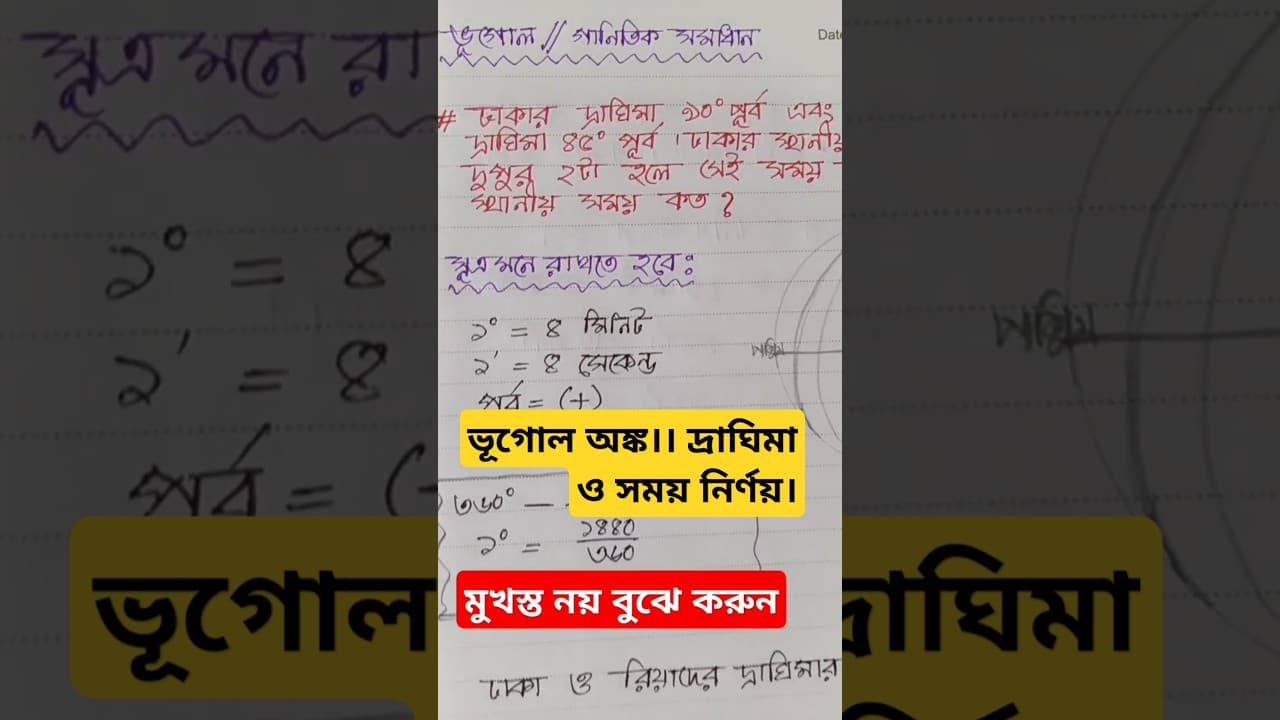 ভূগোল // গানিতিক সমাধান
Date
# ঢাকার দ্রাঘিমা ৯০° পূর্ব এবং
দ্রাঘিমা ৪৫° পূর্ব । ঢাকার স্থানীয়
দুপুর ২টা হলে সেই সময়
স্থানীয় সময় কত ?
সূত্র মনে রাখতে হবে :
১° = ৪ মিনিট
১′ = ৪ সেকেন্ড
পশ্চিম
পূর্ব = (+)
ভূগোল অঙ্ক।। দ্রাঘিমা
ও সময় নির্ণয়।
৩৬০° —
১° = ১৪৪০/৩৬০
মুখস্ত নয় বুঝে করুন
ঢাকা ও রিয়াদের দ্রাঘিমার